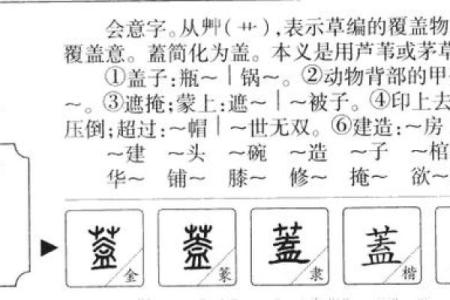 会意字。从艸(艹),表示草编的覆盖物
覆盖意。蓋简化为盖。本义是用芦苇或茅草
①盖子:瓶～｜锅～。②动物背部的甲
～。③遮掩;蒙上:遮～｜～被子。④印上去
压倒;超过:～帽｜～世无双。⑥建造:～房
～建 ～头 ～碗 ～造 ～子 ～棺
华～ 铺～ 膝～ 修～ 掩～ 欲～
蓋金 蓋篆 蓋隶 蓋楷